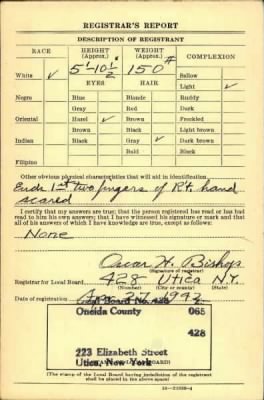 REGISTRAR'S REPORT
DESCRIPTION OF REGISTRANT
RACE HEIGHT (Approx.) WEIGHT (Approx.) COMPLEXION
5'-10½" 150#
White ✓ EYES HAIR Sallow
Light ✓
Negro Blue Blonde Ruddy
Gray Red Dark
Oriental Hazel ✓ Brown Freckled
Brown Black Light brown
Indian Black Gray ✓ Dark brown
Bald Black
Filipino
Other obvious physical characteristics that will aid in identification
Ends 1st two fingers of Rt. hand
scared
I certify that my answers are true; that the person registered has read or has had
read to him his own answers; that I have witnessed his signature or mark and that
all of his answers of which I have knowledge are true, except as follows:
None
Oscar H.
(Signature of registrar)
Registrar for Local Board 428 Utica N.Y.
(Number) (City or county) (State)
Date of registration 27 1942
Local Board No. 428
Oneida County 065
428
223 Elizabeth Street
Utica, New York
(The stamp of the Local Board having jurisdiction of the registrant
shall be placed in the above space)